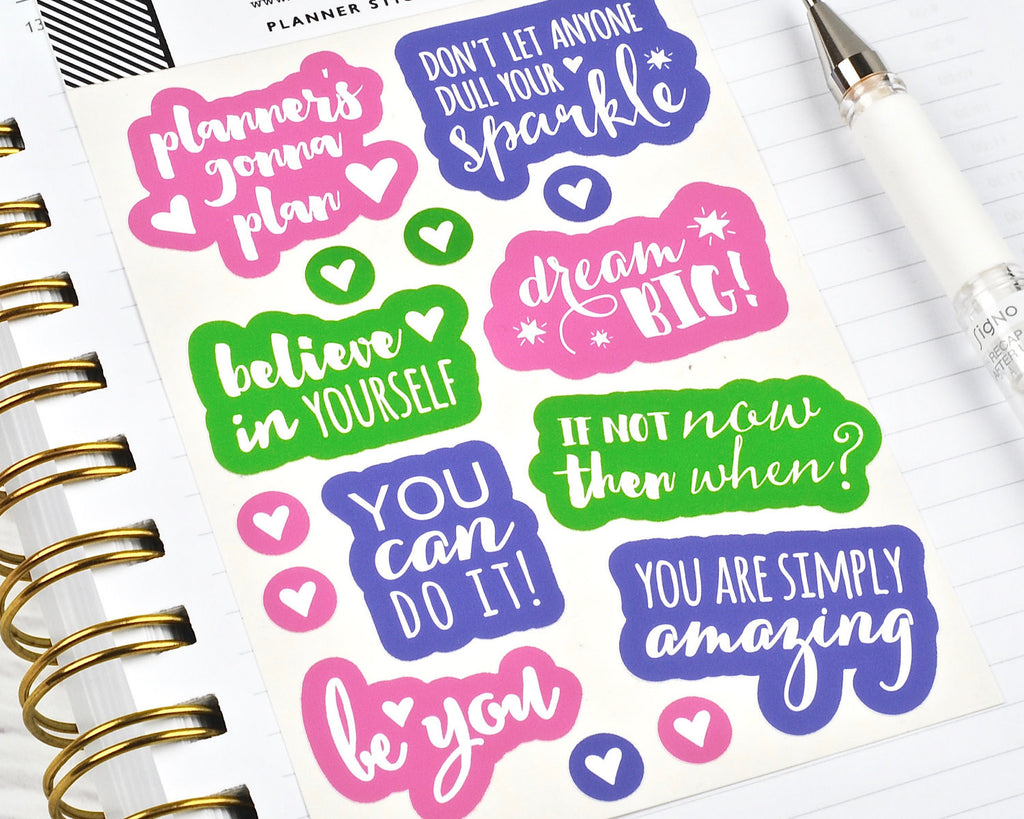 13
PLANNER
planner's
gonna
plan
DON'T LET ANYONE
DULL YOUR
sparkle
dream
BIG!
believe
in YOURSELF
IF NOT now
then when?
YOU
can
DO IT!
YOU ARE SIMPLY
amazing
be you
SigNo
RECAP
AFTER